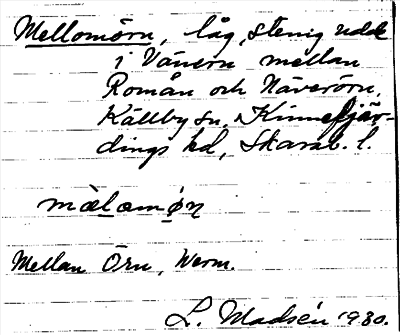 Mellomörn, låg, stenig udde
i Vänern mellan
Ромån och Näverörn,
Källby sn, Kinnefjär-
dings hd, Skarab. l.
mälamọ̈n
Mellan Örn, Werm.
L. Madsén 1930.